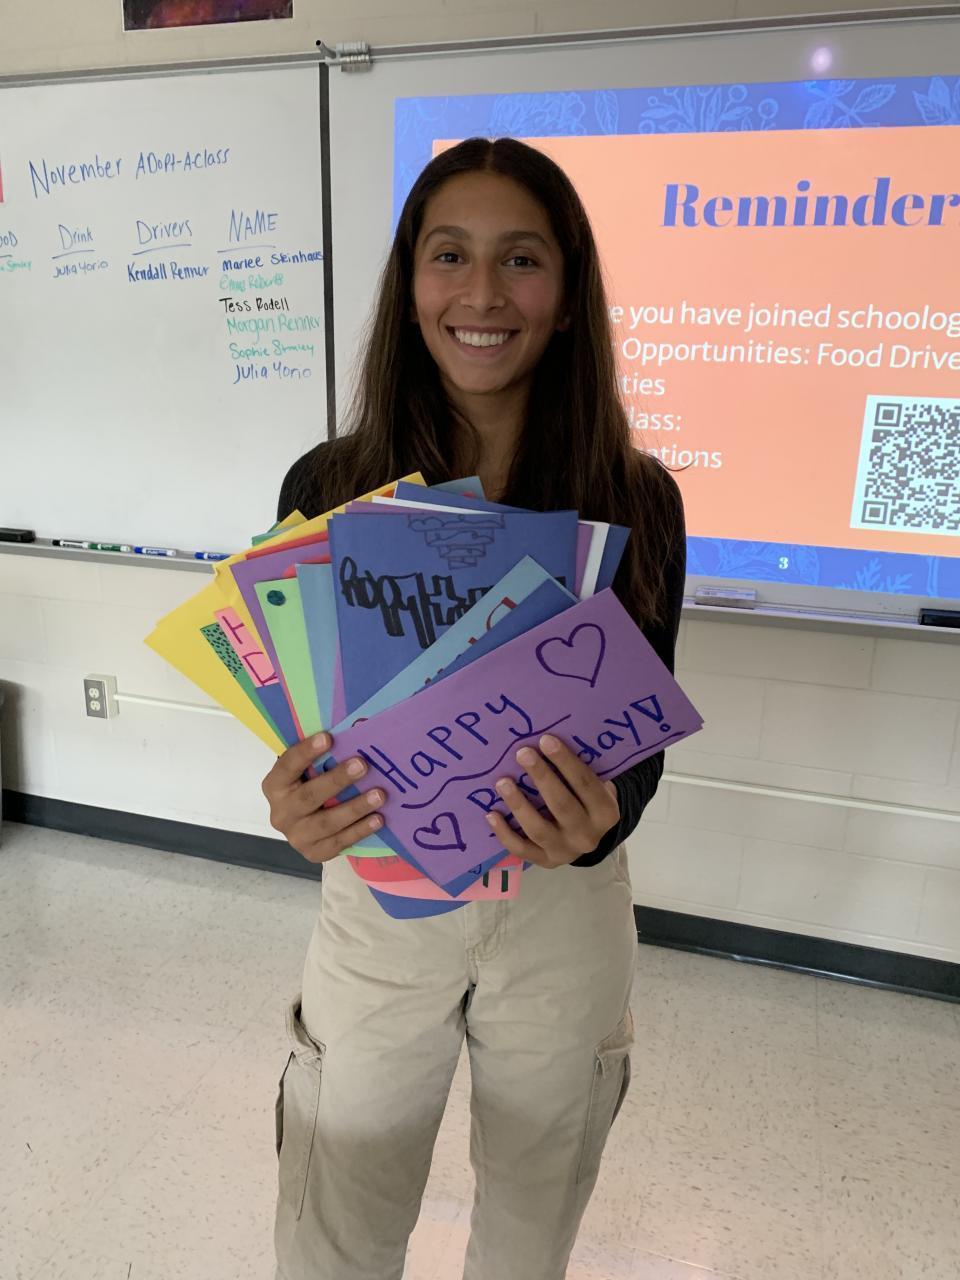 November Adopt-A-Class
Drink
Julia Yorio
Drivers
Kendall Renner
NAME
Marlee Steinhaus
Emma Roberts
Tess Rodell
Morgan Renner
Sophie Straley
Julia Yorio
Reminder
e you have joined schoolog
Opportunities: Food Drive
ties
lass:
ations
3
Happy
Happy
Birthday!